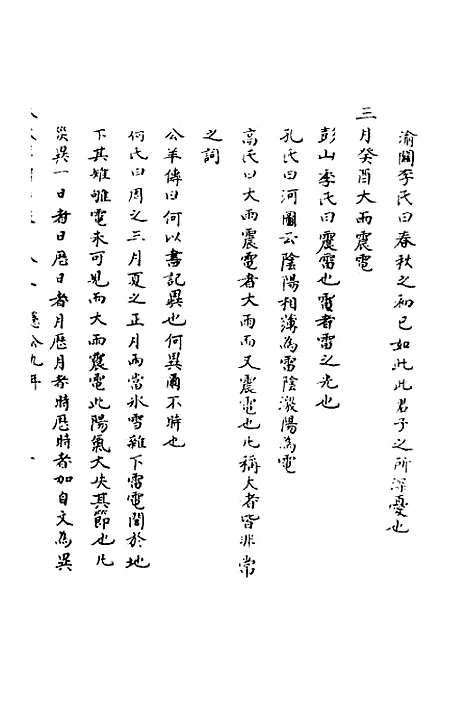 渝關李氏曰春秋之初已如此此君子之所深憂也
三月癸酉大雨震電
彭山李氏曰震雷也電者雷之光也
孔氏曰河圖云陰陽相薄為雷陰激陽為電
高氏曰大雨震電者大雨而又震電也凡稱大者皆非常
之詞
公羊傳曰何以書記異也何異爾不時也
何氏曰周之三月夏之正月雨當水雪雜下雷電聞於地
下其雉雊電未可見而大雨震電此陽氣大失其節也凡
災異一日者日歷日者月歷月者時歷時者加自文為異
隱公九年